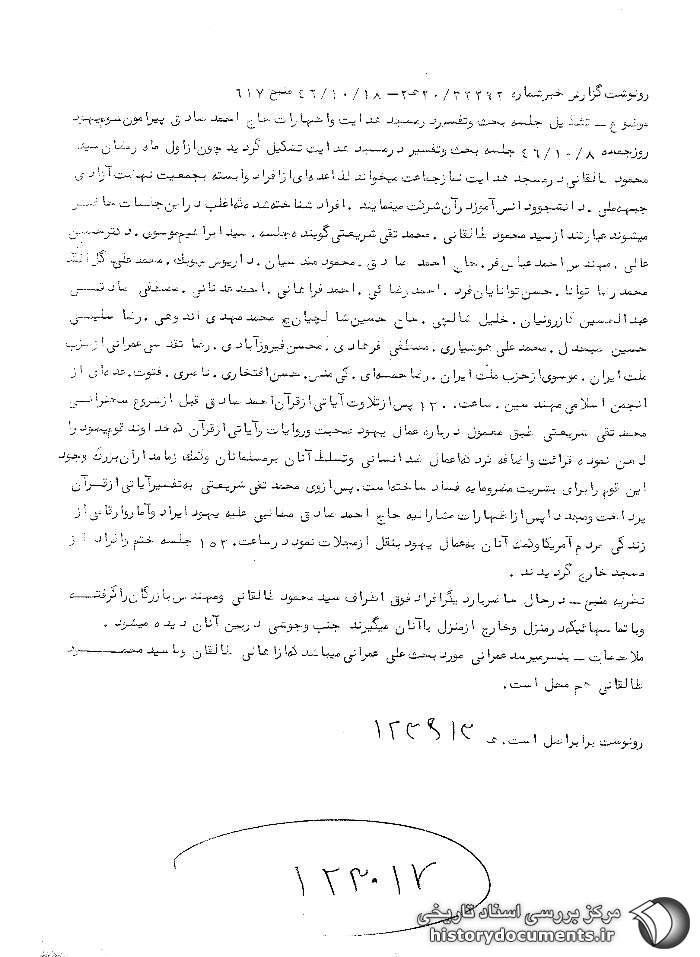 رونوشت گزارش خبر شماره ۳۳۳۹۲/۲۰ه۲ – ۴۶/۱۰/۱۸ منبع ۶۱۷
موضوع – تشکیل جلسه بحث و تفسیر در مسجد هدایت و اظهارات حاج احمد صادق پیرامون قوم یهود
روز جمعه ۴۶/۱۰/۸ جلسه بحث و تفسیر در مسجد هدایت تشکیل گردید چون از اول ماه رمضان سید
محمود طالقانی در مسجد هدایت نماز جماعت میخواند لذا عده‌ای از افراد وابسته بجمعیت نهضت آزادی
جبهه ملی . دانشجو و دانش آموز در آن شرکت مینمایند . افراد شناخته شده که اغلب در این جلسات حاضر
میشوند عبارتند از سید محمود طالقانی . محمد تقی شریعتی گوینده جلسه . سید ابراهیم موسوی . دکتر حسین
عالی . مهندس احمد عباس فر . حاج احمد صادق . محمود مهندسیان . داریوش . محمد علی
محمد رضا توانا . حسن توانایان فرد . احمد رضائی . احمد فراهانی . احمد عدنانی . مصطفی صادقی
عبدالحسین کازرونیان . خلیل . حاج حسین شالچیان . محمد مهدی . رضا
حسین . محمد علی هوشیاری . مصطفی فرهادی . محسن فیروزآبادی . رضا تقدسی عمرانی از حزب
ملت ایران . موسوی از حزب ملت ایران . رضا . حسن افتخاری . ناصری . فتوت . عده‌ای از
انجمن اسلامی مهندسین . ساعت ۱۲۰۰ پس از تلاوت آیاتی از قرآن احمد صادق قبل از شروع سخنرانی
محمد تقی شریعتی طبق معمول درباره عمال یهود صحبت و روایات و آیاتی از قرآن که خداوند قوم یهود را
لعن نموده قرائت و اضافه کرد که اعمال ضد انسانی و تسلط آنان بر مسلمانان و کمک زمامداران بزرگ وجود
این قوم را برای بشریت مضر و مایه فساد ساخته است . پس از وی محمد تقی شریعتی به تفسیر آیاتی از قرآن
پرداخت و مجددا پس از اظهارات مشارالیه حاج احمد صادق مطالبی علیه یهود ایراد و آمار و ارقامی از
زندگی مردم آمریکا و کمک آنان به عمال یهود بنقل از مجلات نمود در ساعت ۱۵۳۰ جلسه ختم و افراد از
مسجد خارج گردیدند .
نظریه منبع – در حال حاضر بار دیگر افراد فوق اطراف سید محمود طالقانی و مهندس بازرگان را گرفته
و با تماسهائیکه در منزل و خارج از منزل با آنان میگیرند جنب و جوشی در بین آنان دیده میشود .
ملاحظات – بنظر میرسد عمرانی مورد بحث علی عمرانی میباشد که از اهالی طالقان و با سید محمود
طالقانی هم محل است .
رونوشت برابر اصل است . ۱۲۳۹۱۳
۱۲۳۰۱۷
مرکز بررسی اسناد تاریخی
historydocuments.ir